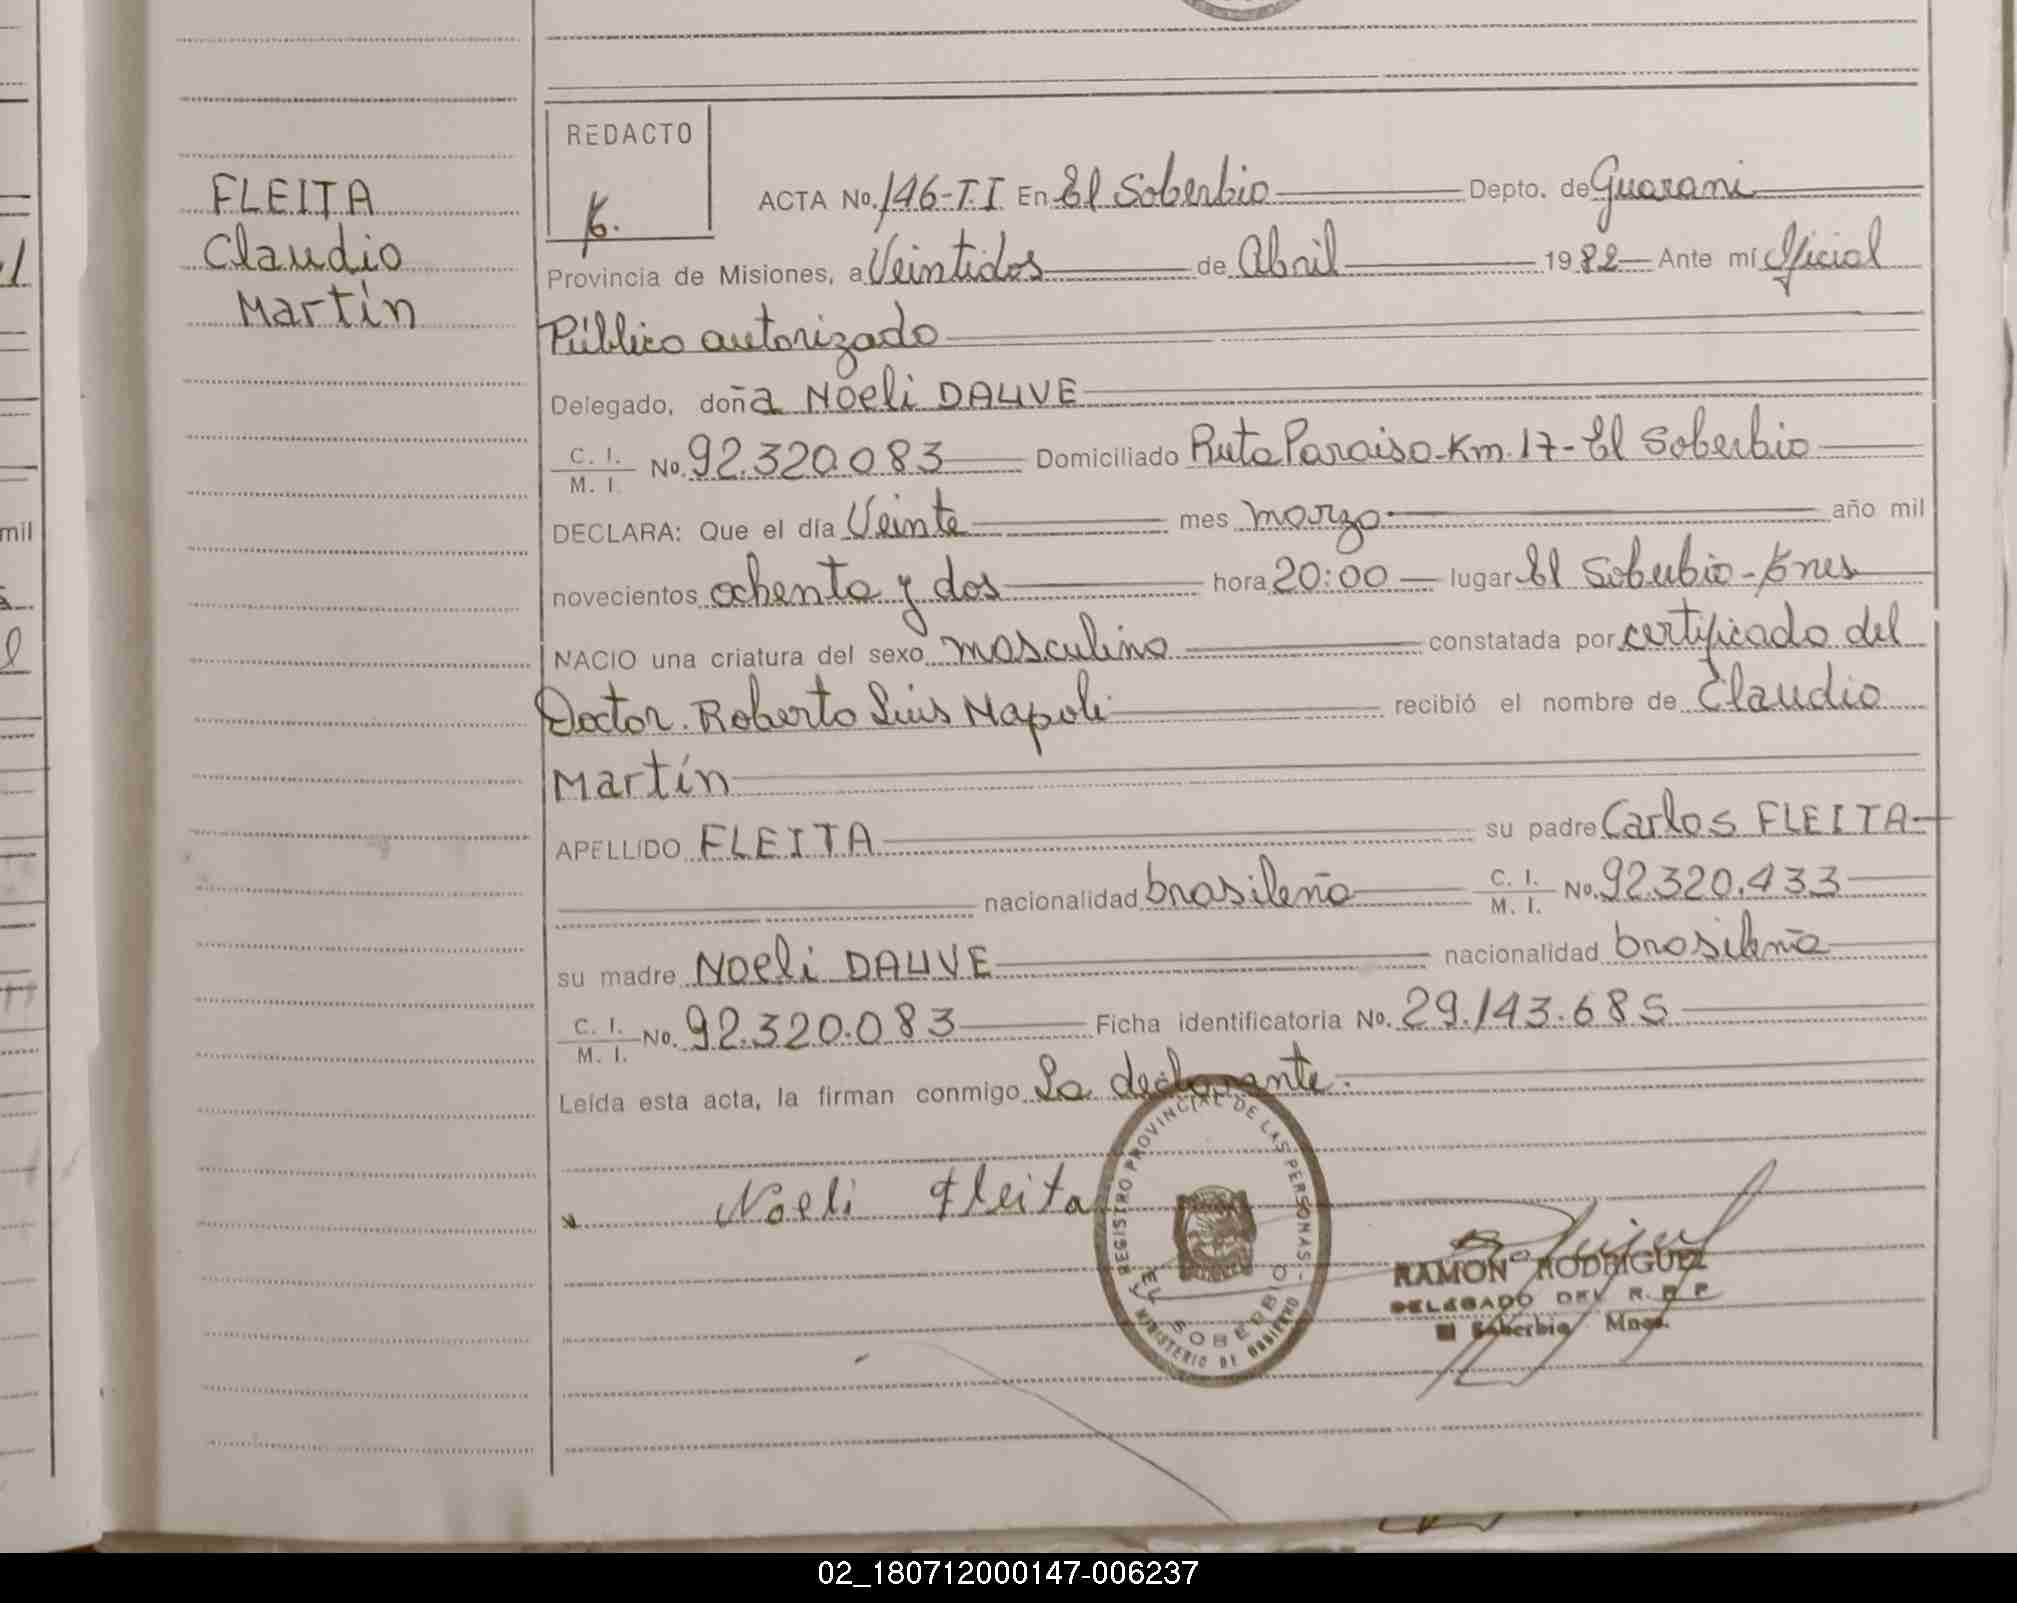 FLEITA
Claudio
Martín
mil
REDACTO
ACTA No. 146-T.I En El Soberbio Depto. de Guarani
Provincia de Misiones, a Veintidos de Abril 1982 Ante mí Oficial
Público autorizado
Delegado, doña Noeli DAUVE
C. I. / M. I. No. 92.320.083 Domiciliado Ruta Paraiso-Km.17-El Soberbio
DECLARA: Que el día Veinte mes marzo año mil
novecientos ochenta y dos hora 20:00 lugar El Soberbio
NACIO una criatura del sexo masculino constatada por certificado del
Doctor Roberto Luis Napoli recibió el nombre de Claudio
Martín
APELLIDO FLEITA su padre Carlos FLEITA
nacionalidad brasileña C. I. / M. I. No. 92.320.433
su madre Noeli DAUVE nacionalidad brasileña
C. I. / M. I. No. 92.320.083 Ficha identificatoria No. 29.143.685
Leída esta acta, la firman conmigo La declarante.
Noeli Fleita
REGISTRO PROVINCIAL DE LAS PERSONAS
EL SOBERBIO
MINISTERIO DE GOBIERNO
RAMON RODRIGUEZ
DELEGADO DEL R. P. P.
El Soberbio Mnes.
02_180712000147-006237